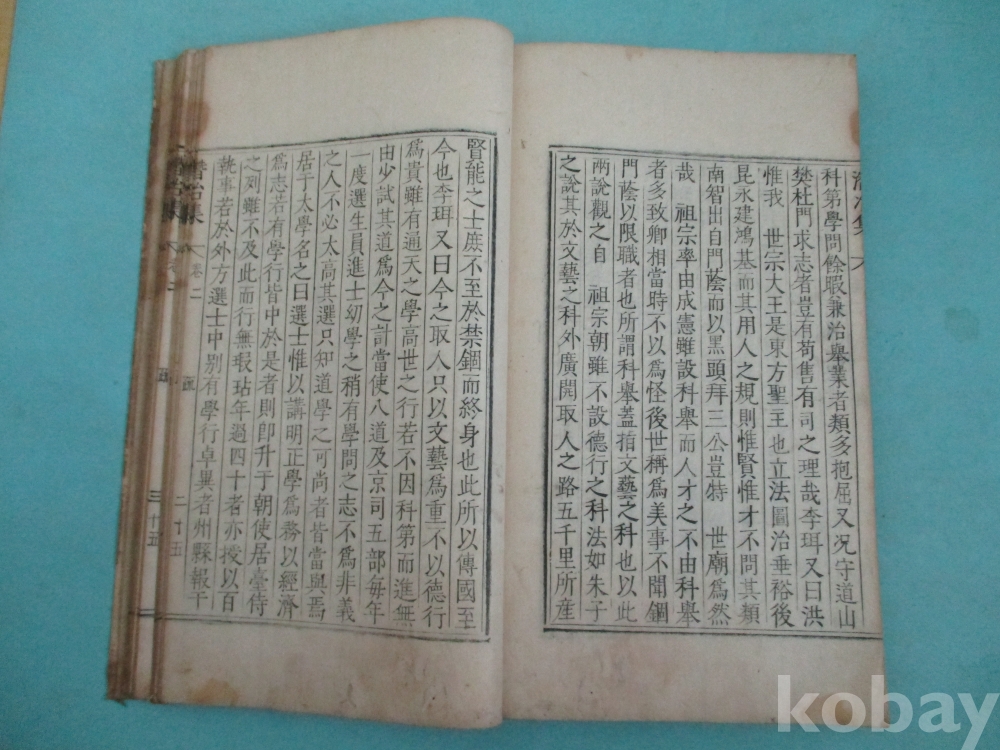 科第學問餘暇兼治舉業者類多抱屈又況守道山
樊杜門求志者豈有苟售有司之理哉李珥又曰洪
惟我 世宗大王是東方聖主也立法圖治垂裕後
昆永建鴻基而其用人之規則惟賢惟才不問其類
南智出自門蔭而以黑頭拜三公豈特 世廟爲然
哉 祖宗率由成憲雖設科舉而人才之不由科舉
者多致卿相當時不以爲怪後世稱爲美事不聞錮
門蔭以限職者也所謂科舉蓋指文藝之科也以此
兩說觀之自 祖宗朝雖不設德行之科法如朱子
之說其於文藝之科外廣開取人之路五千里所産
賢能之士庶不至於禁錮而終身也此所以傳國至
今也李珥又曰今之取人只以文藝爲重不以德行
爲貴雖有通天之學高世之行若不因科第而進無
由少試其道爲今之計當使八道及京司五部每年
一度選生員進士幼學之稍有學問之志不爲非義
之人不必太高其選只知道學之可尚者皆當與焉
居于太學名之曰選士惟以講明正學爲務以經濟
爲志若有學行皆中於是者則卽升于朝使居臺侍
之列雖不及此而行無瑕玷年過四十者亦授以百
執事若於外方選士中別有學行卓異者州縣報干
卷二
二十五
三十五
kobay